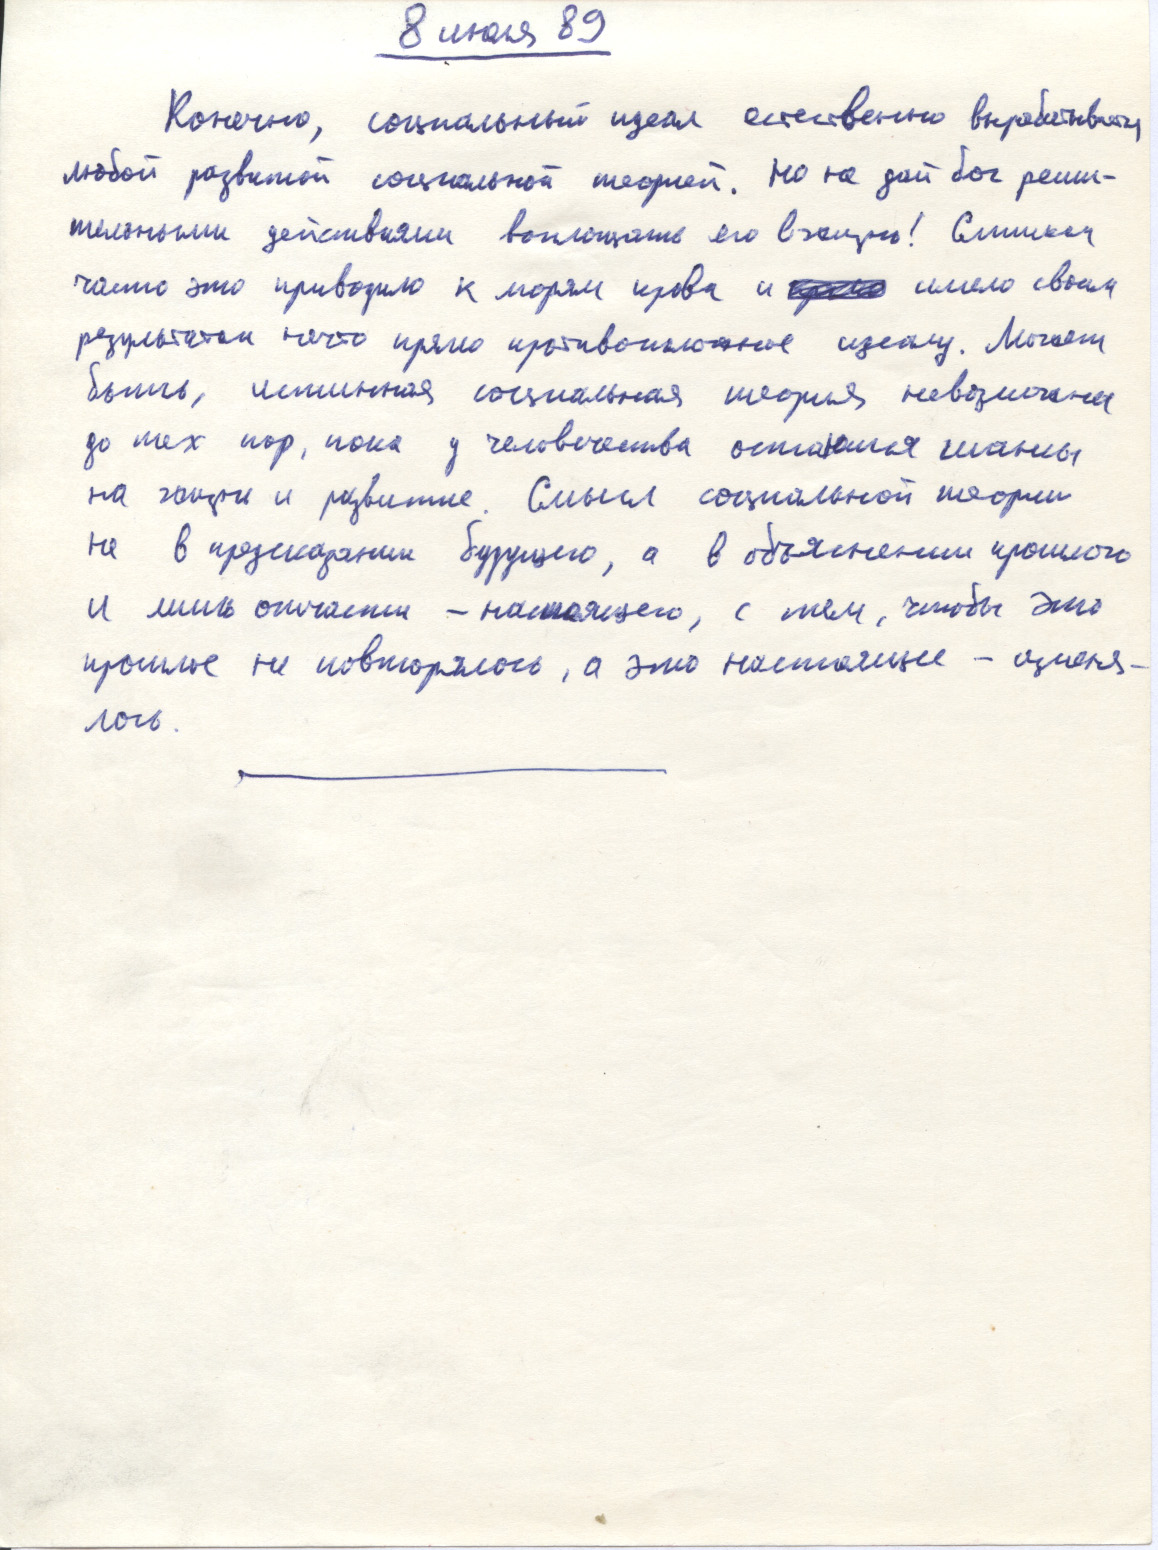 8 июля 89
Конечно, социальный идеал естественно вырабатывается
любой развитой социальной теорией. Но не дай бог реши-
тельными действиями воплощать его в жизнь! Слишком
часто это приводило к морям крови и имело своим
результатом нечто прямо противоположное идеалу. Может
быть, истинная социальная теория невозможна
до тех пор, пока у человечества остаются шансы
на жизнь и развитие. Смысл социальной теории
не в предсказании будущего, а в объяснении прошлого
и лишь отчасти – настоящего, с тем, чтобы это
прошлое не повторялось, а это настоящее – изменя-
лось.